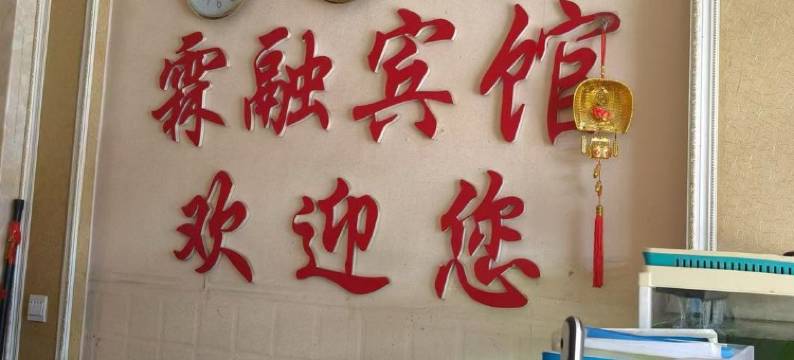 霖融宾馆
欢迎您